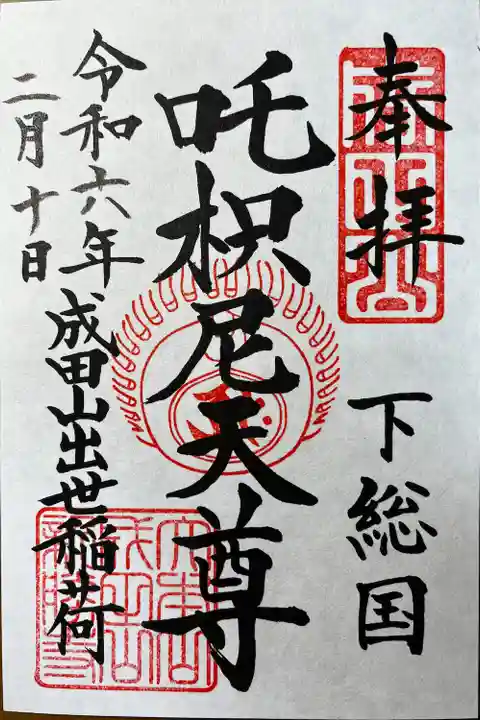 奉拝
下総国
吒枳尼天尊
成田山出世稲荷
令和六年
二月十日